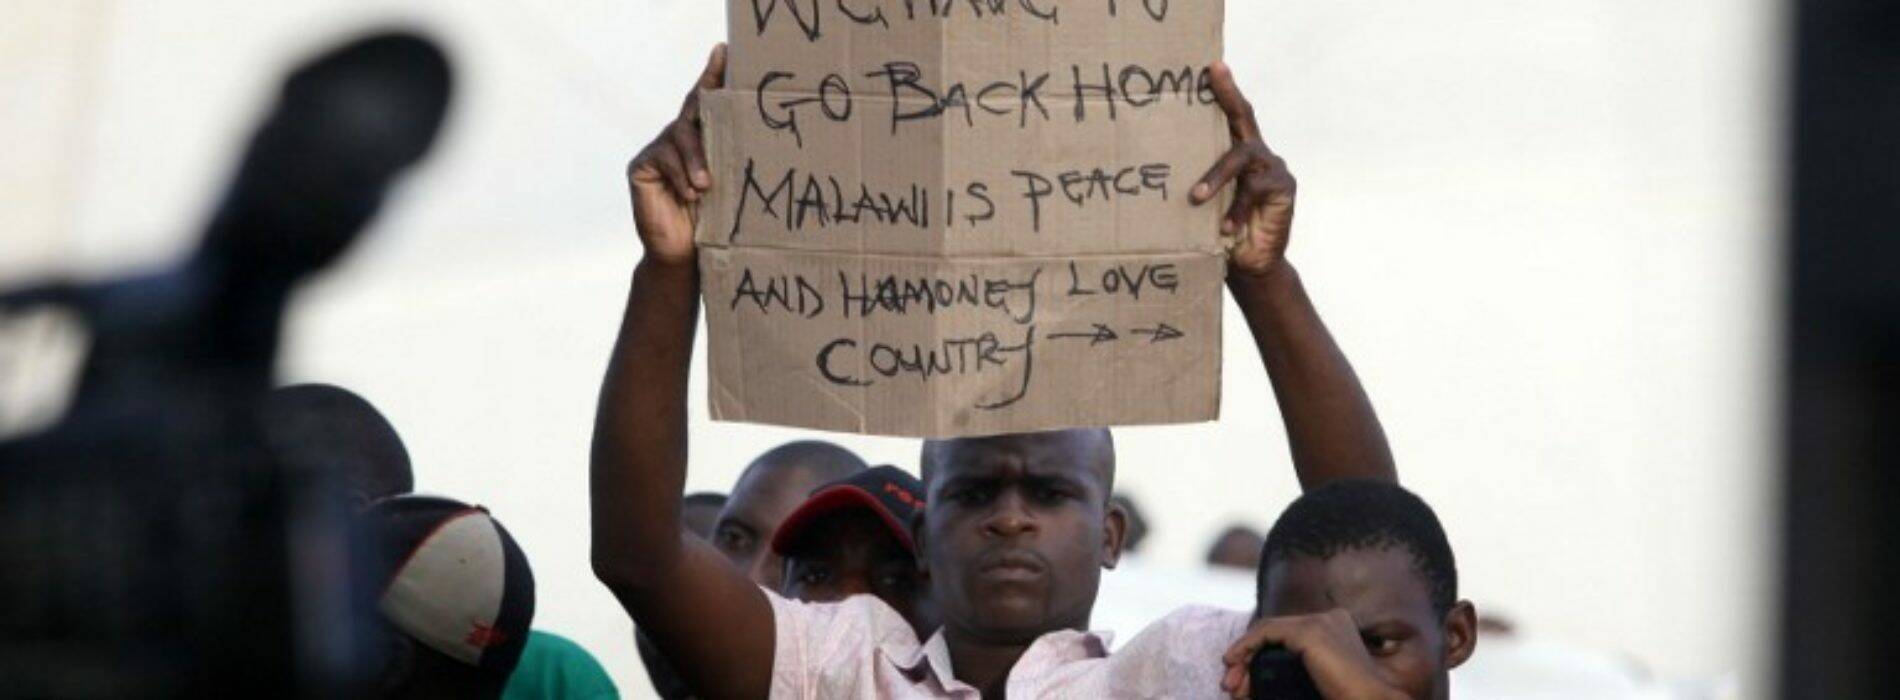 WE HAVE TO
GO BACK HOME
MALAWI IS PEACE
AND HAMONEY LOVE
COUNTRY